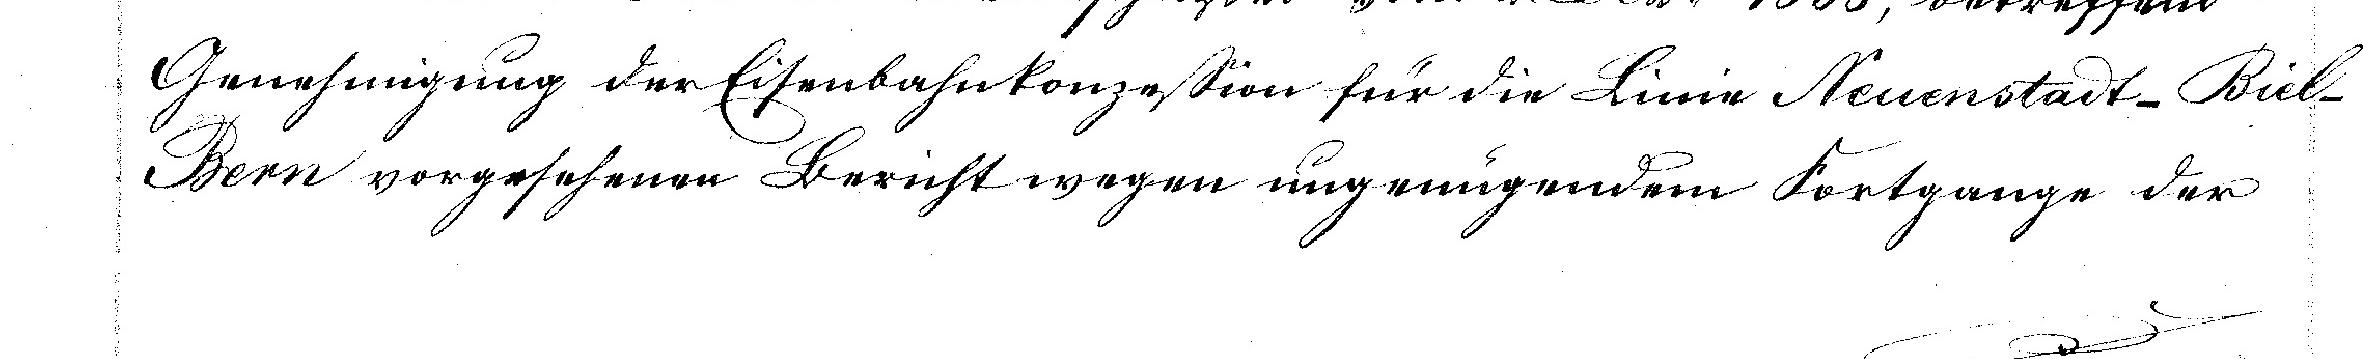 betreffend
Genehmigung der Eisenbahnkonzession für die Linie Neuenstadt-Biel-
Bern vorgesehenen Bericht wegen ungenügendem Fortgange der